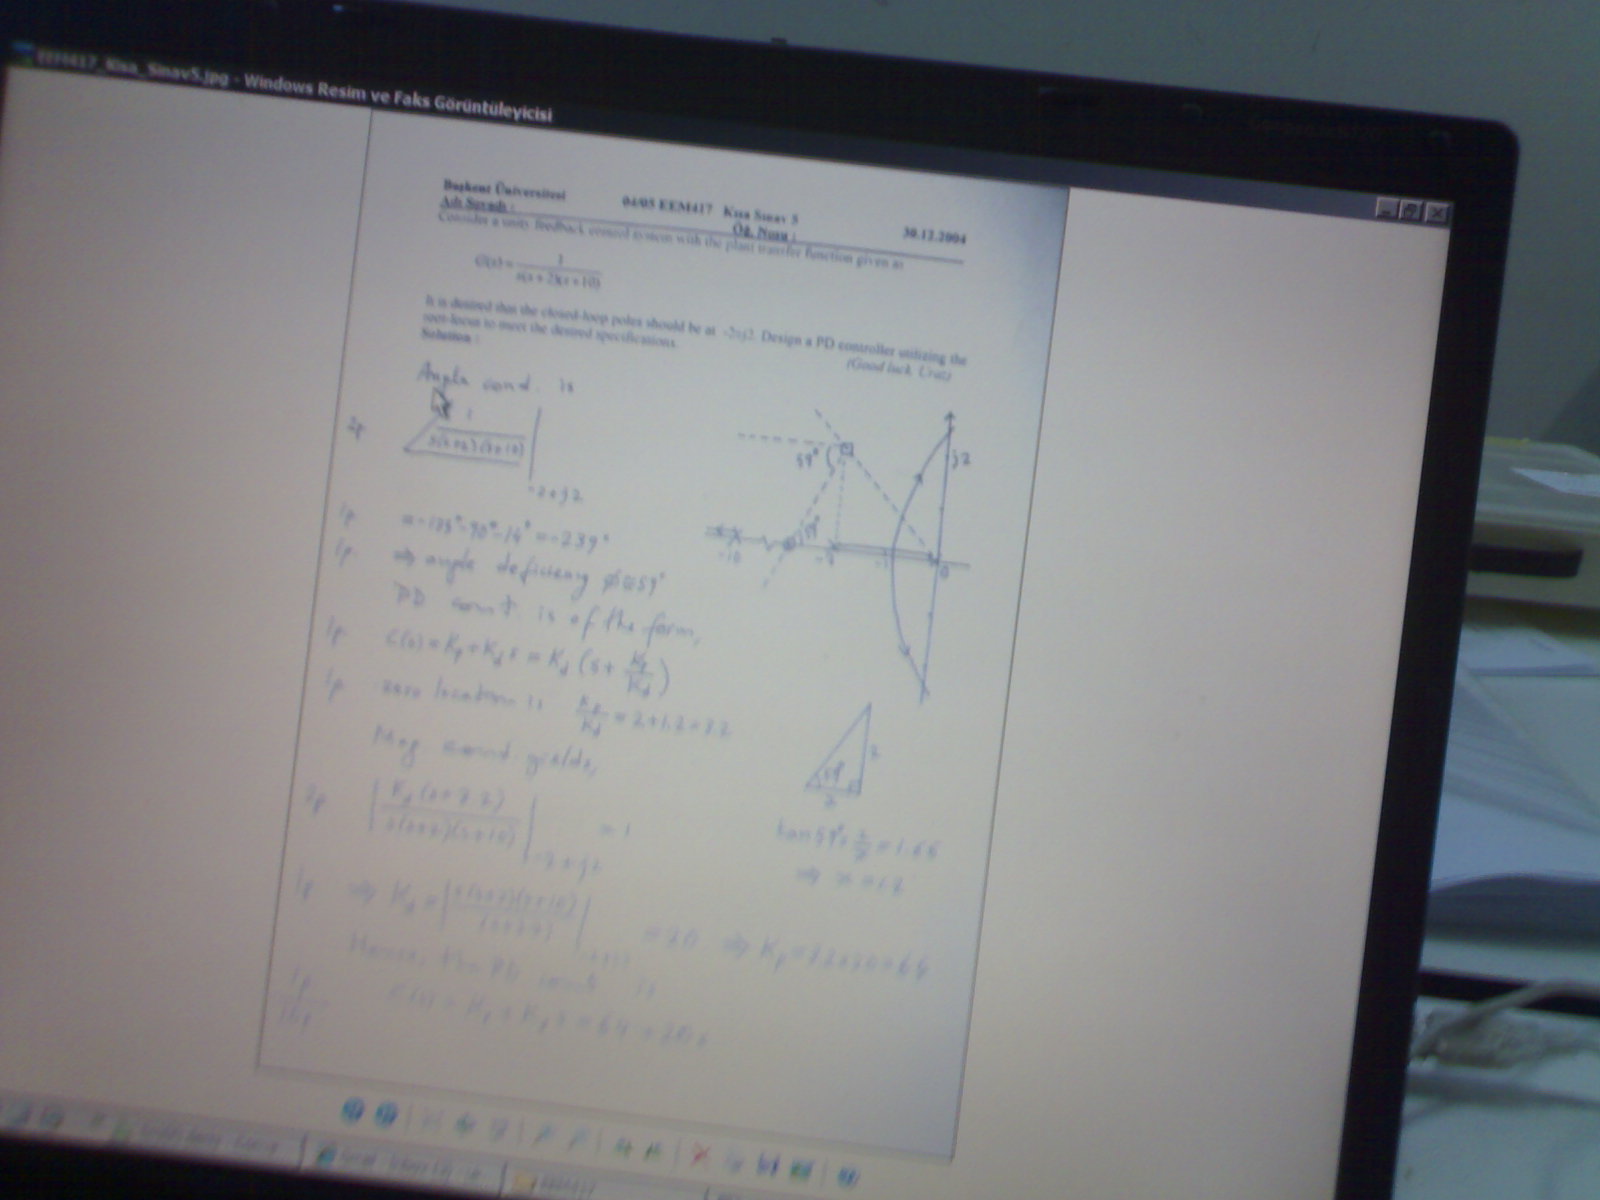 EEM417_Kisa_Sinav5.jpg - Windows Resim ve Faks Görüntüleyicisi
Başkent Üniversitesi 04/05 EEM417 Kısa Sınav 5 30.12.2004
Adı Soyadı : Öğ. Nosu :
Consider a unity feedback control system with the plant transfer function given as
G(s) = 1 / s(s + 2)(s + 10)
It is desired that the closed-loop poles should be at -2±j2. Design a PD controller utilizing the
root-locus to meet the desired specifications.
(Good luck,
Solution :
Angle cond. is
2p 1 / s(s+2)(s+10) | -2+j2
1p = -135° -90° -14° = -239°
1p ⇒ angle deficiency φ = 59°
PD cont. is of the form,
1p C(s) = Kp + Kd s = Kd (s + Kp/Kd)
1p zero location is Kp/Kd = 2+1.2 = 3.2
Mag cond yields,
2p | Kd (s+3.2) / s(s+2)(s+10) | -2+j2 = 1
1p ⇒ Kd = | s(s+2)(s+10) / (s+3.2) | = 20 ⇒ Kp = 64
Hence, the PD cont is
1p C(s) = Kp + Kd s = 64 + 20s
59°
j2
59°
-10
-2
-1
0
59°
2
tan 59° = 2/x = 1.66
⇒ x = 1.2